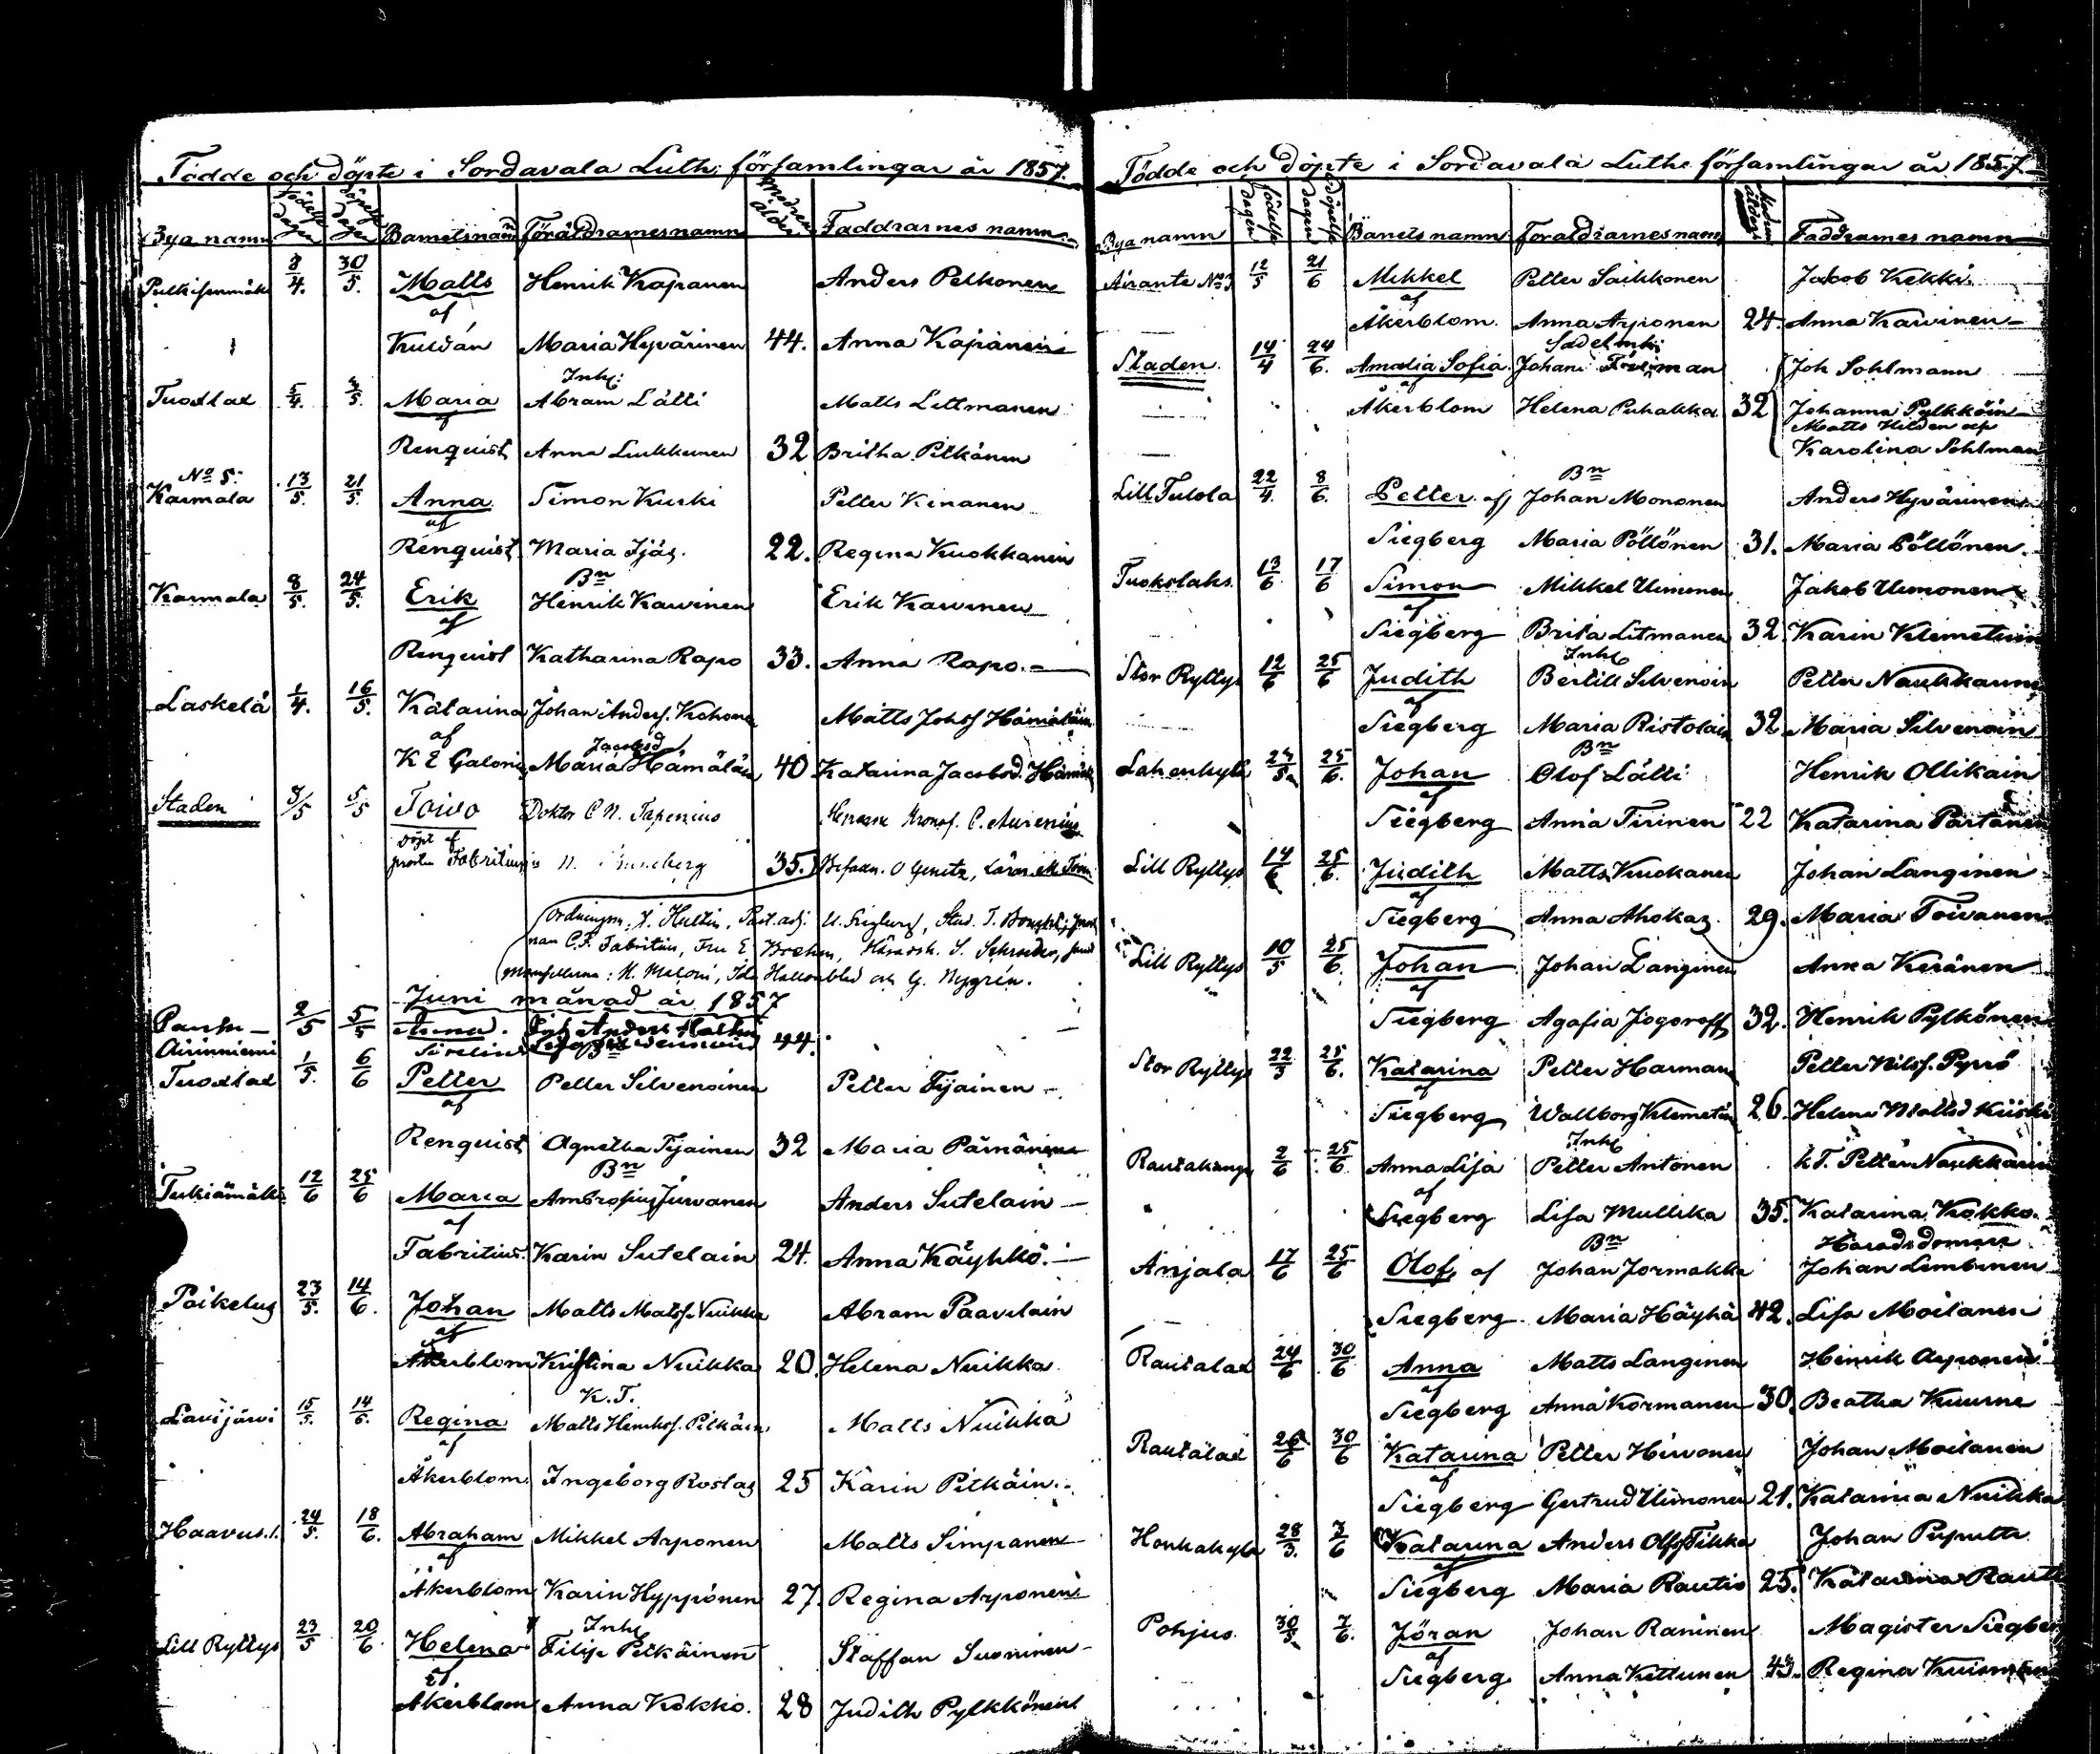 Födde och döpte i Sordavala Luth: församlingar år 1857.
Bya namn Födelse dagen Döpelse dagen Barnetsnamn Föräldrarnesnamn modrens ålder Faddrarnes namn
8/4. 30/5. Matts Henrik Kapanen Anders Pelkonen
af
Maria Hyvärinen 44. Anna Kapanen
Inh:
Tuoslax 5/4. 3/5. Maria Abram Lätti Matts Littmanen
af
Renquist Anna Luukkunen 32 Britha Pitkänen
No 5.
Karmala 13/5. 21/5. Anna Simon Kurki Petter Kinanen
af
Renquist Maria Ijäs. 22. Regina Kuokkanen
Bn
Karmala 8/5. 24/5. Erik Henrik Karvinen Erik Karvinen
af
Renquist Katharina Rapo 33. Anna Rapo.
Laskelä 1/4. 16/5. Katarina Johan Anders. Kohonen Matts Johsf Hämäläin
af Jacobsd
K E Galonius Maria Hämäläin 40 Katarina Jacobsd. Hämäl
Staden 3/5 5/5 Toivo Doktor C N. Kronof. C. Aurenius
döpt af
prosten Fabritius N. 35.
Ordningsm. J. Hultin, Past. adj. U. Siegberg, Stud. T.
C.F. Fabritius, Fru E. S. Schroder,
H. Meloni, Ida Hallonblad och G. Nygrén.
Juni månad år 1857
2/5 5/5 Anna. 44.
Airinniemi
Tuoslax 1/5. 6/6 Petter Petter Silvenoinen Petter Tyjainen
af
Renquist Agnetha Tyjainen 32 Maria Pärnänen
Bn
12/6 25/6 Maria Ambrosius Jurvanen Anders Sutelain
af
Fabritius. Karin Sutelain 24. Anna Käyhkö.
Paikelus 23/5. 14/6. Johan Matts Matsf. Nuikka Abram Paavilain
af
Åkerblom Kristina Nuikka 20. Helena Nuikka
K. T.
Lavijärvi 15/5. 14/6. Regina Matts Henrksf. Pitkäin Matts Nuikka
af
Åkerblom. Ingeborg Rostas 25 Karin Pitkäin.
Haavus. 24/5. 18/6. Abraham Mikkel Arponen Matts Simpanen
af
Åkerblom Karin Hyppönen 27. Regina Arponen
Inh
Lill Ryttys 23/5 20/6. Helena Filip Pelkäinen Staffan Suoninen
af
Åkerblom Anna Kokko. 28 Judith Pylkkönen
Födde och döpte i Sordavala Luthe församlingar år 1857
Bya namn Födelse dagen Döpelse dagen Barnets namn Föräldrarnes namn Modrens ålder Faddrarnes namn
Airante No 3 12/5 21/6 Mikkel Petter Saikkonen Jakob Kekki
af
Åkerblom. Anna Arponen 24. Anna Karvinen
Staden. 14/4 24/6. Amalia Sofia. Johan Joh Sohlmann
af
Åkerblom Helena Puhakka 32 Johanna Pylkköin
Matts Hilden och
Karolina Sohlman
Bn
Lill Tulola 22/4. 8/6. Petter af Johan Mononen Anders Hyvärinen
Siegberg Maria Pöllönen 31. Maria Pöllönen.
Tuokslaks. 13/6 17/6 Simon Mikkel Uimonen Jakob Uimonen
af
Siegberg Brita Litmanen 32. Karin Klemetinen
Inh
Stor Ryttys 12/6 25/6 Judith Bertill Silvenoin Petter Naukkarinen
af
Siegberg Maria Ristolain 32 Maria Silvenoin
Bn
Lahenkylä 24/5. 25/6. Johan Olof Lätti Henrik Ollikain
af
Siegberg Anna Tirinen 22 Katarina Partanen
Lill Ryttys 14/6 25/6. Judith Matts Kuokanen Johan Langinen
af
Siegberg Anna Ahokas 29. Maria Toivanen
Lill Ryttys 10/5 25/6. Johan Johan Langinen Anna Keränen
af
Siegberg Agafia Jogoroff 32. Henrik Pylkönen
Stor Ryttys 22/5 25/6. Katarina Petter Harmanen Petter Nilsf. Pyrrö
af
Siegberg Wallborg Klemetin 26. Helena Mattsd Kiiski
Inh
Rautakangas 2/6 25/6. Anna Lisa Petter Antonen k T. Petter Naukkarin
af
Siegberg Lisa Mullikka 35. Katarina Kokko.
Bn Häradsdomare
Anjala 17/6 25/6 Olof af Johan Jormakka Johan Limbinen
Siegberg. Maria Häyhä 42. Lisa Moilanen
Rautalax 24/6 30/6 Anna Matts Langinen Henrik Arponen
af
Siegberg Anna Kormanen 30. Beatha Kuurne
Rautalax 26/6 30/6 Katarina Petter Hirvonen Johan Moilanen
af
Siegberg Gertrud Uimonen 21. Katarina Nuikka
Honkakylä 28/3. 3/6 Katarina Anders Olfsf Tikka Johan Puputti
af
Siegberg Maria Rautio 25. Katarina Rauti
Pohjus. 30/3 7/6. Jöran Johan Raninen Magister Siegberg
af
Siegberg Anna Kettunen 43. Regina Kuismanen